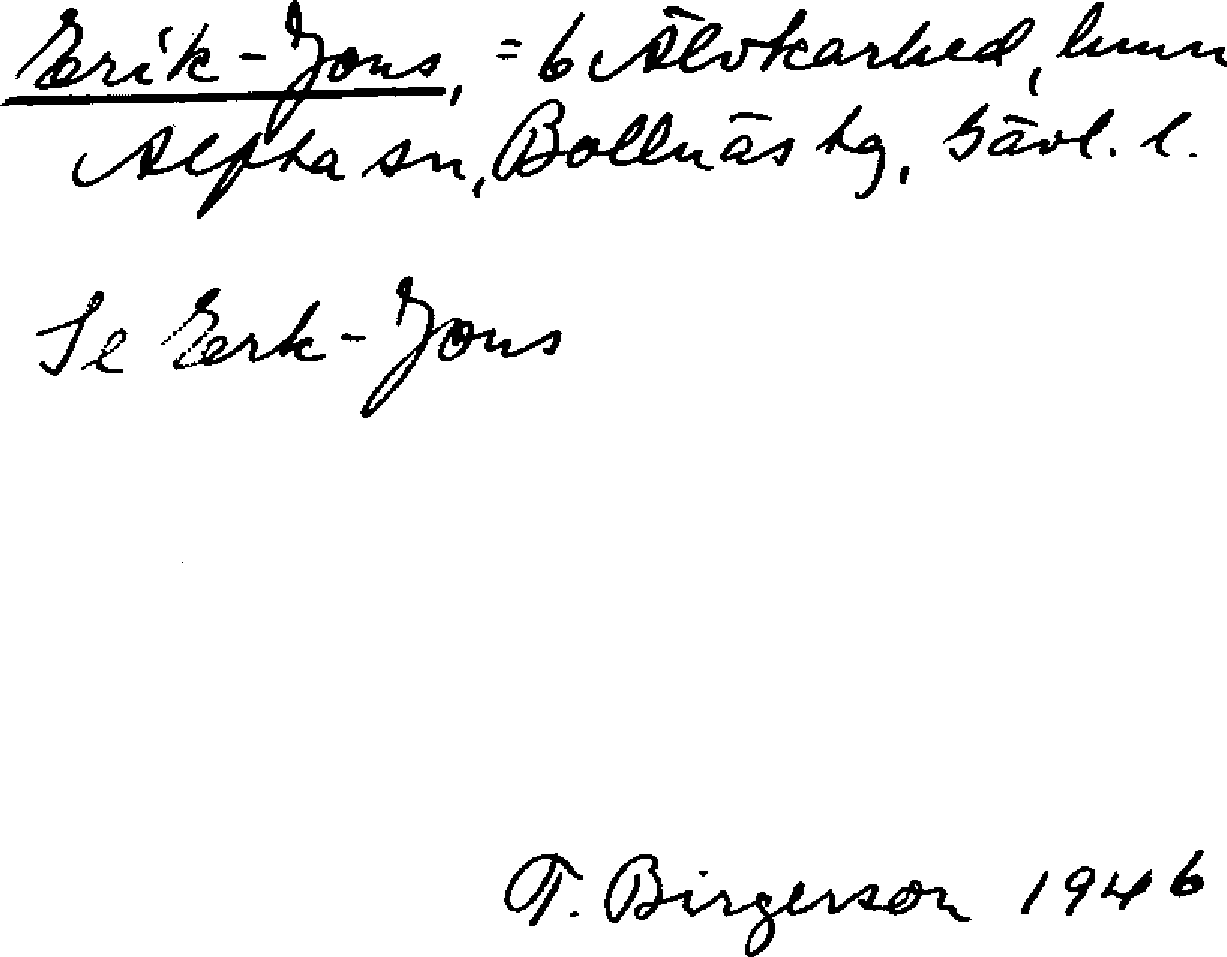 Erik-Jons, = 6 Älvkarhed, hmn
Alfta sn, Bollnäs tg, Gävl. l.
Se Eerk-Jons
T. Birgerson 1946